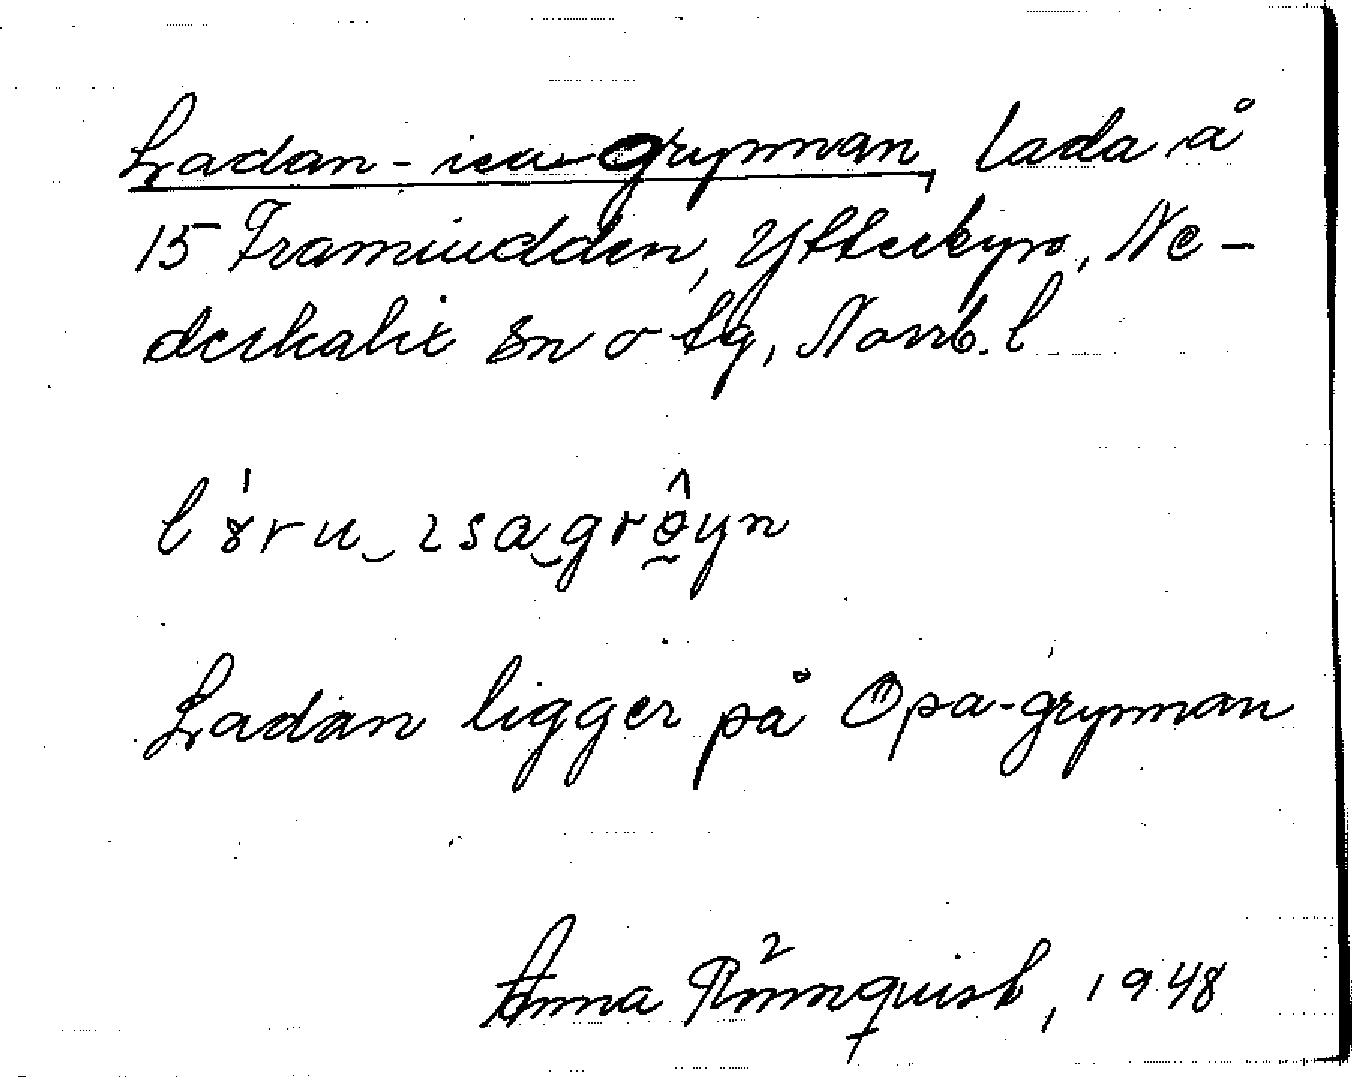 Ladan-isa-grynnan, lada å
15 Framiudden, Ytterbyn, Ne-
derkalix sn o tg, Norrb. l
Ladan ligger på Öpa-grynnan
Anna Rönnquist, 1948